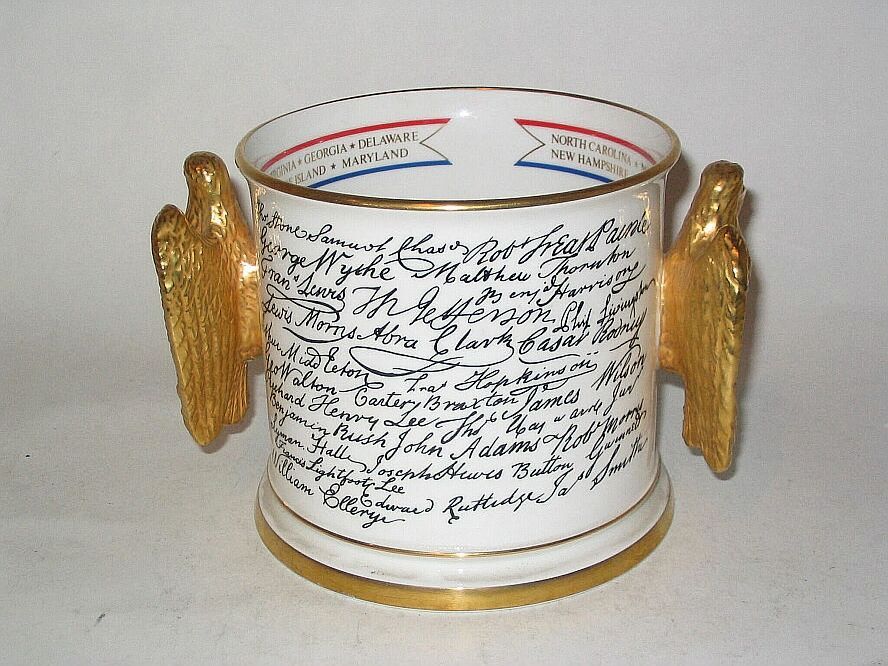 GEORGIA ★ DELAWARE
ISLAND ★ MARYLAND
NORTH CAROLINA ★
NEW HAMPSHIRE
Thos Stone Samuel Chase Robt Treat Paine
George Wythe Matthew Thornton
Frans Lewis Th Jefferson Benj Harrison
Lewis Morris Abra Clark Casar Rodney Phil Livingston
Middleton Fras Hopkinson
Geo Walton Carter Braxton James Wilson
Richard Henry Lee Thos Heyward Junr
Benjamin Rush John Adams Robt Morris
Lyman Hall Joseph Hewes Button Gwinnett
Francis Lightfoot Lee
William Ellery Edward Rutledge Jas Smith